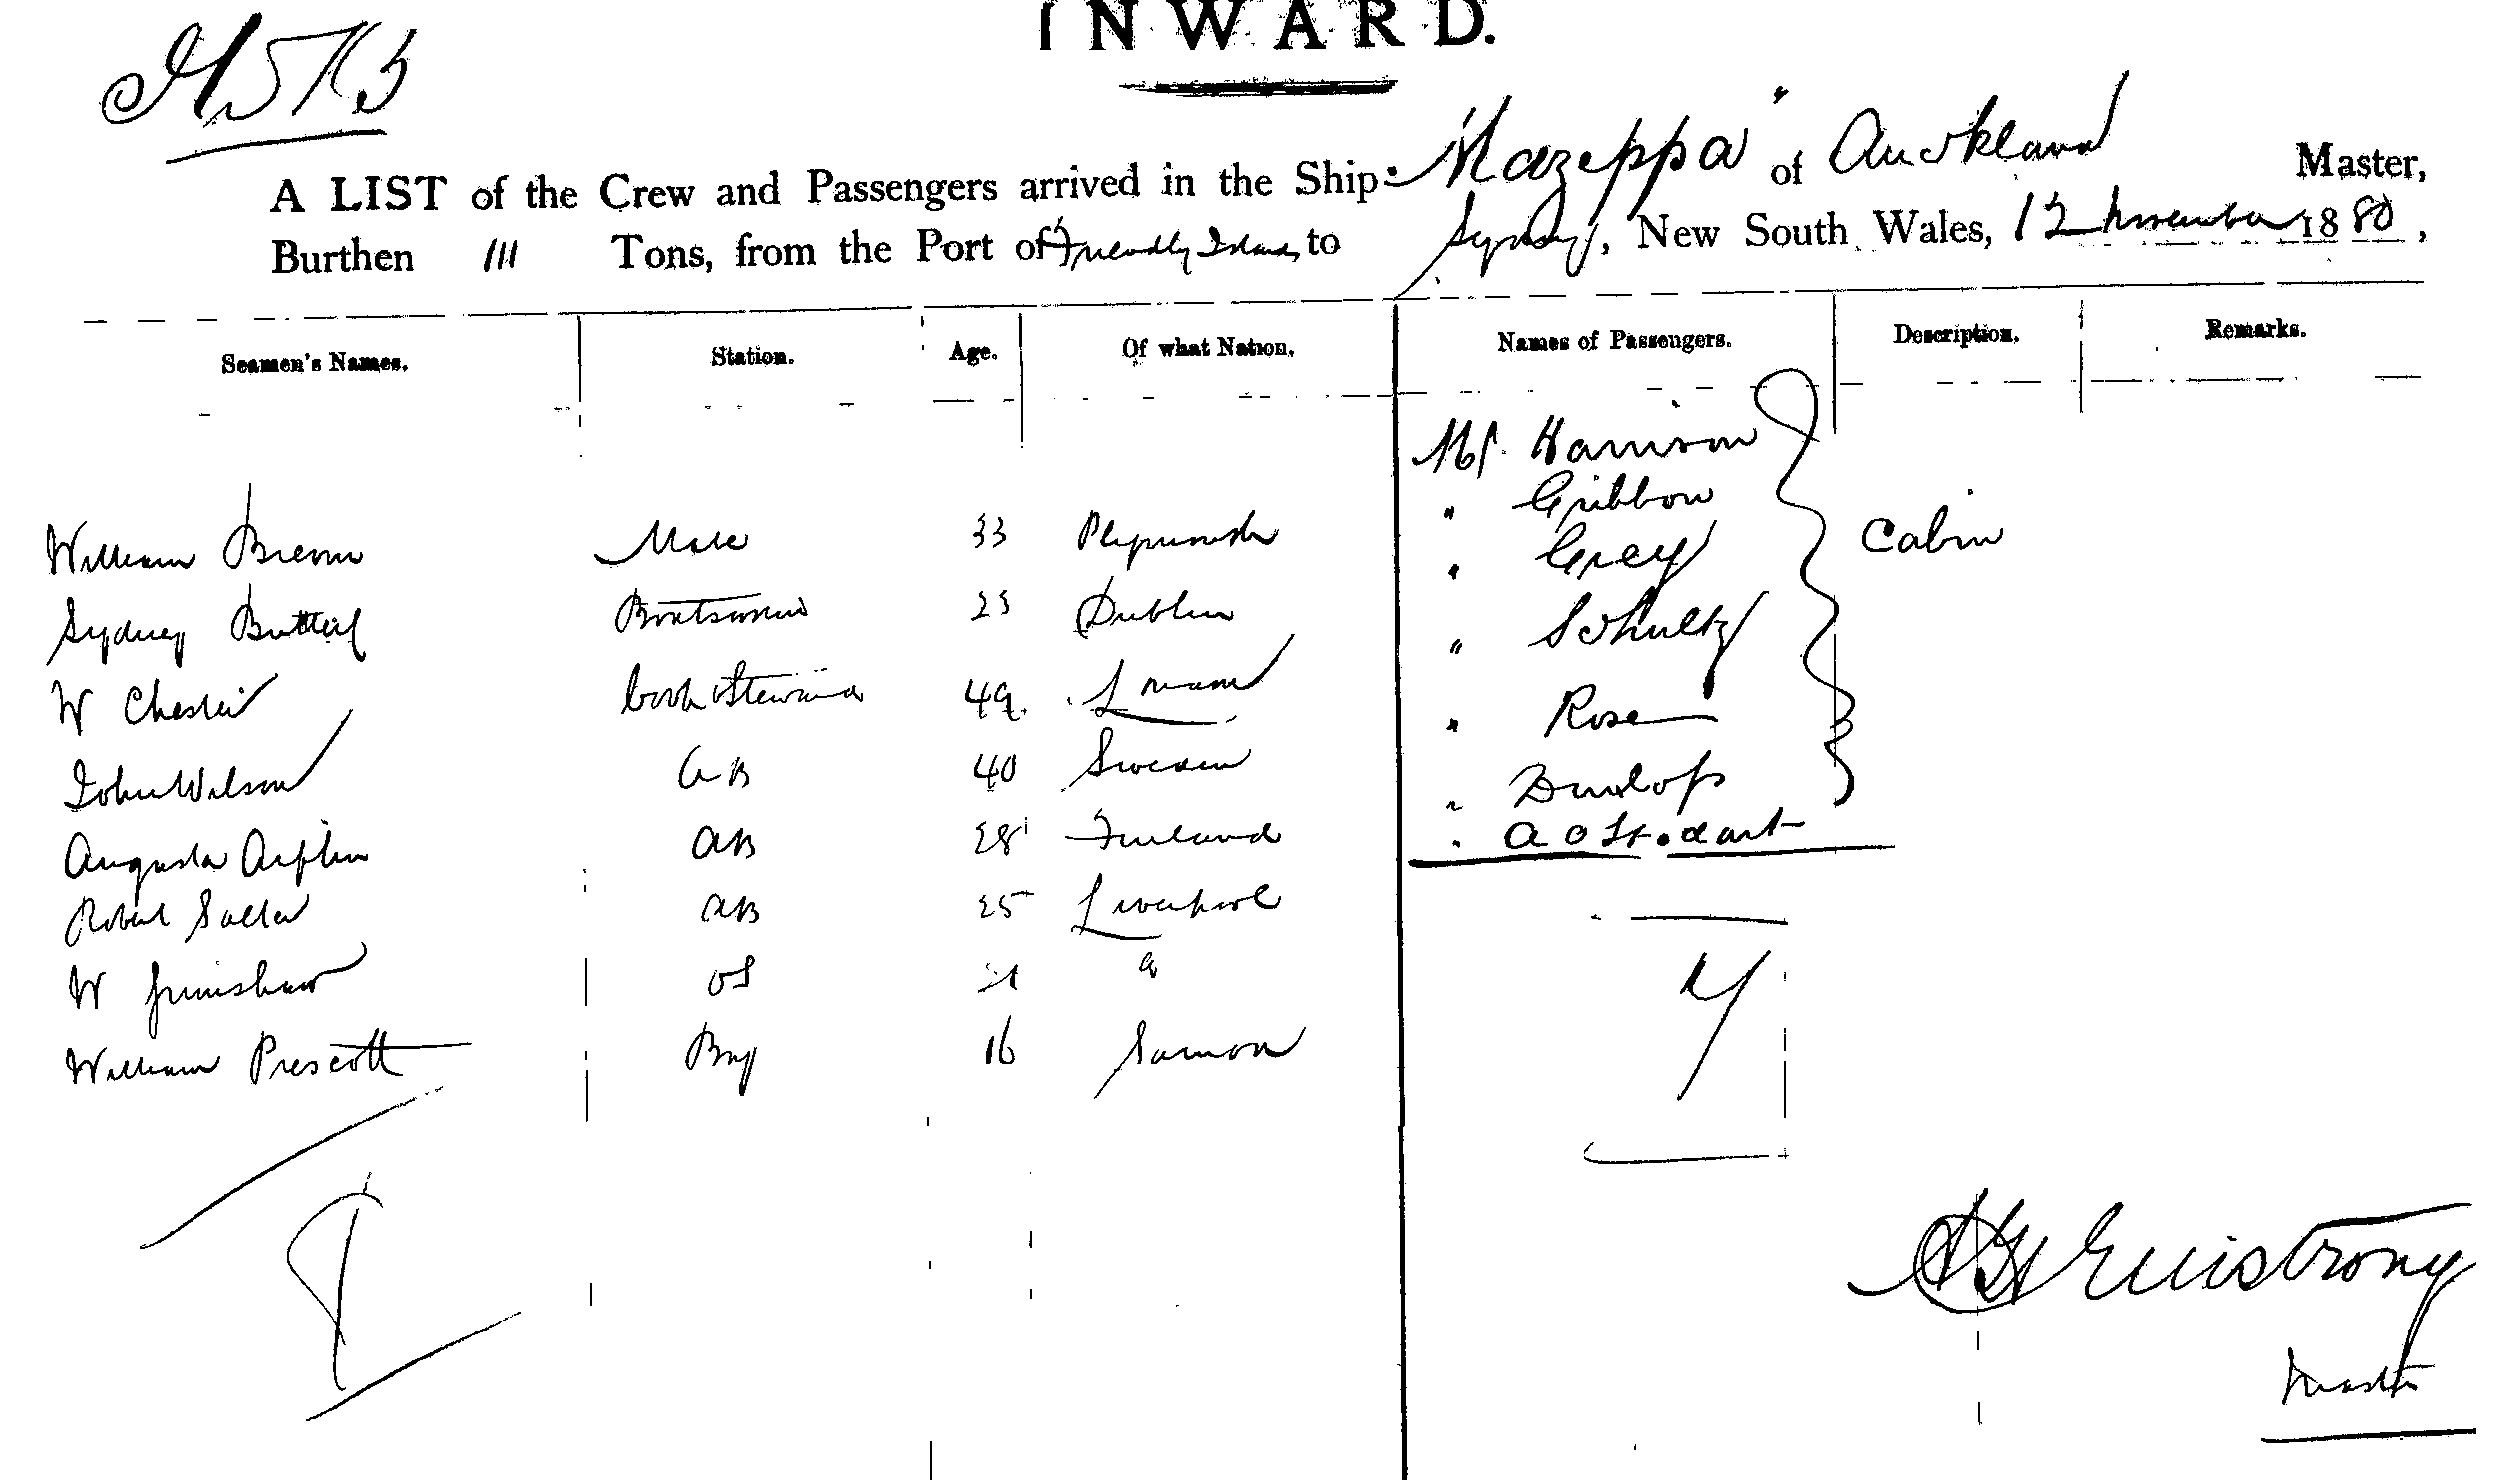 INWARD.
A LIST of the Crew and Passengers arrived in the Ship "Mazeppa" of Auckland Master,
Burthen 111 Tons, from the Port of Friendly Islands to Sydney, New South Wales, 12 November 1880,
Seamen's Names. Station. Age. Of what Nation. Names of Passengers. Description. Remarks.
Mr. Harrison
" Gribbon
William Brown Mate 33 Plymouth " Grey Cabin
Sydney Butterl Boatswain 23 Dublin " Schultz
W Chester Cook Steward 49 " Rose
John Wilson AB 40 Sweden " Dunlop
Augusta AB 28 Finland " A O Stodart
Robert Salter AB 25 Liverpool
W Grimshaw OS 21 "
William Prescott Boy 16 Samoa
7
8
Master